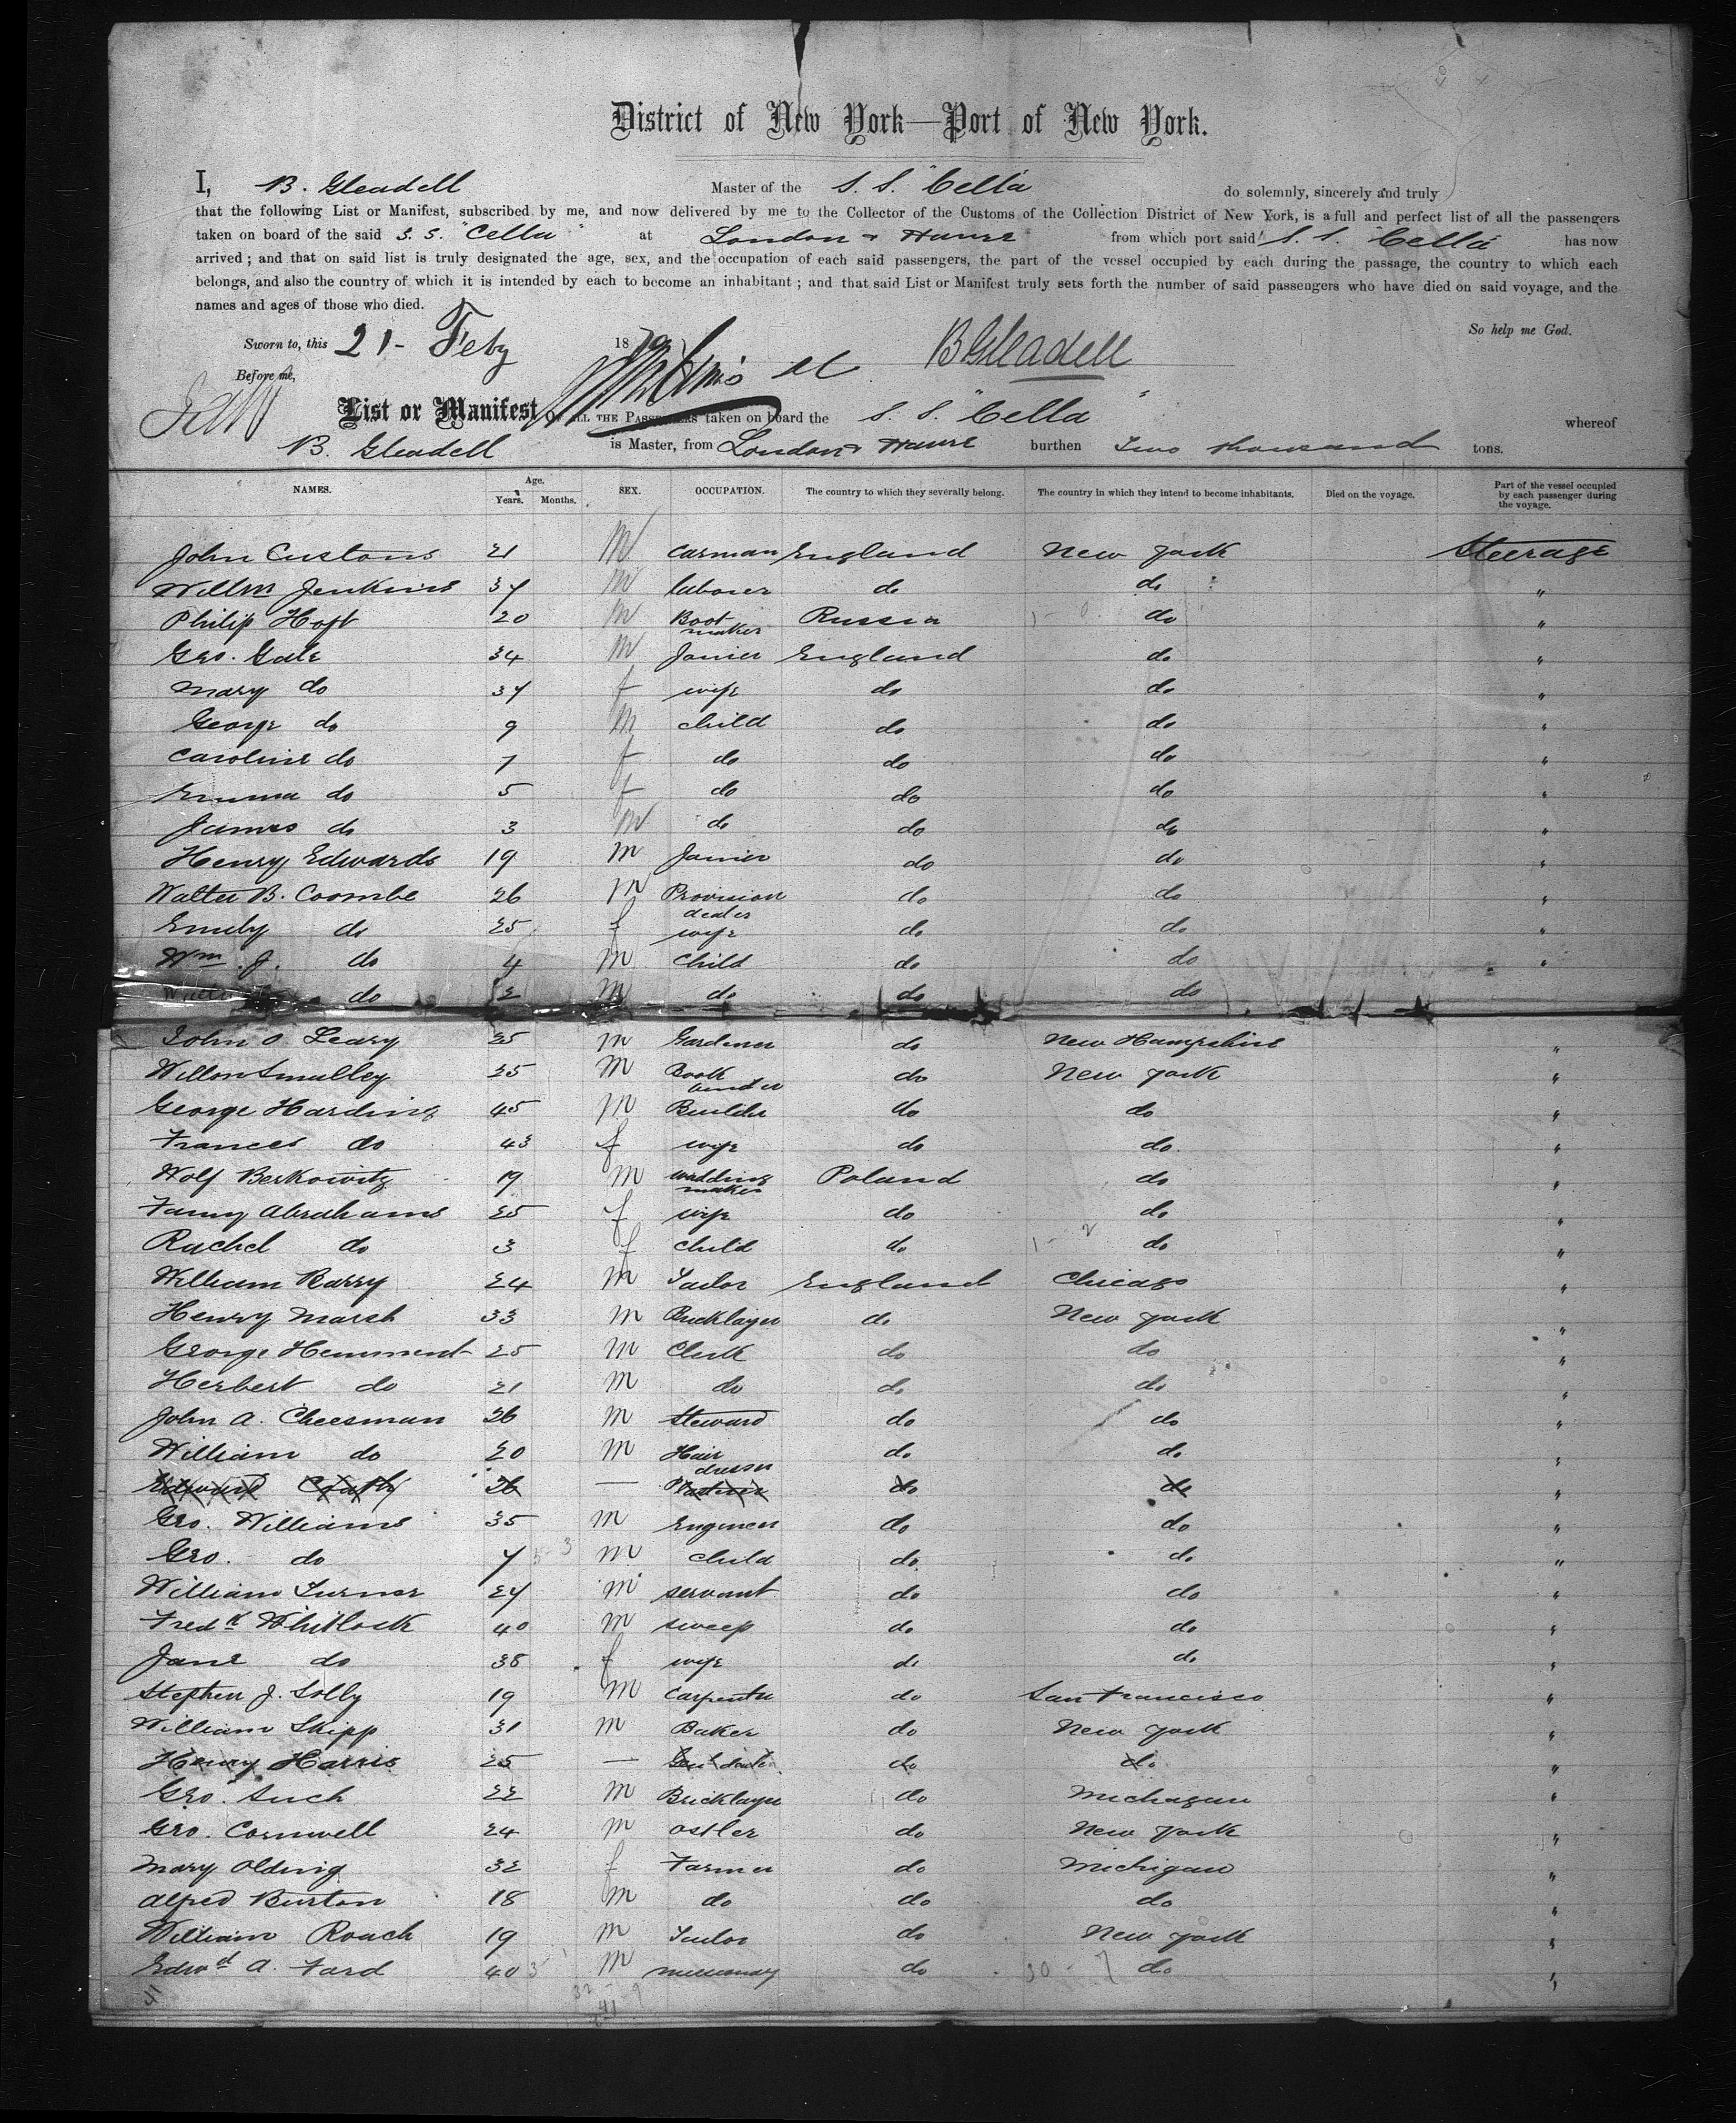 District of New York—Port of New York.
I, B. Gleadell Master of the S. S. "Cella" do solemnly, sincerely and truly
that the following List or Manifest, subscribed by me, and now delivered by me to the Collector of the Customs of the Collection District of New York, is a full and perfect list of all the passengers
taken on board of the said S. S. "Cella" at London & Havre from which port said S. S. "Cella" has now
arrived; and that on said list is truly designated the age, sex, and the occupation of each said passengers, the part of the vessel occupied by each during the passage, the country to which each
belongs, and also the country of which it is intended by each to become an inhabitant; and that said List or Manifest truly sets forth the number of said passengers who have died on said voyage, and the
names and ages of those who died.
So help me God.
Sworn to, this 21- Feby 1879 B Gleadell
Before me,
List or Manifest OF ALL THE PASSENGERS taken on board the S. S. "Cella" whereof
B. Gleadell is Master, from London & Havre burthen Two thousand tons.
NAMES. Age. Years. Months. SEX. OCCUPATION. The country to which they severally belong. The country in which they intend to become inhabitants. Died on the voyage. Part of the vessel occupied by each passenger during the voyage.
John Custons 21 M carman England New York Steerage
Willm Jenkins 37 M laborer do do "
Philip Hoft 20 M Boot maker Russia do "
Geo. Gale 34 M Joiner England do "
Mary do 37 f wife do do "
George do 9 M child do do "
Caroline do 7 f do do do "
Emma do 5 f do do do "
James do 3 M do do do "
Henry Edwards 19 M Joiner do do "
Walter B. Coombe 26 M Provision dealer do do "
Emily do 25 f wife do do "
Wm. J. do 4 M Child do do "
do 2 M do do do
John O Leary 25 M Gardener do New Hampshire "
Smalley 25 M Book binder do New York "
George Harding 45 M Builder do do "
Frances do 43 f wife do do "
Wolf Berkowitz 19 M wadding maker Poland do "
Fanny Abrahams 25 f wife do do "
Rachel do 3 f child do do "
William Barry 24 M Tailor England Chicago "
Henry Marsh 33 M Bricklayer do New York "
George Hemment 25 M Clerk do do "
Herbert do 21 M do do do "
John A. Cheesman 26 M Steward do do "
William do 20 M Hair dresser do do "
Edward 26 — do do "
Geo. Williams 35 M Engineer do do "
Geo. do 7 M child do do "
William Turner 27 M servant do do "
Fredk Whitlock 40 M sweep do do "
Jane do 38 f wife do do "
Stephen J. Solly 19 M Carpenter do San Francisco "
William Skipp 31 M Baker do New York "
Henry Harris 25 — do do "
Geo. Such 22 M Bricklayer do Michagan "
Geo. Cornwell 24 M ostler do New York "
Mary Olding 32 f Farmer do Michigan "
Alfred Burton 18 M do do do "
William Roach 19 M Tailor do New York "
Edwd A. Ford 40 M do do "
41